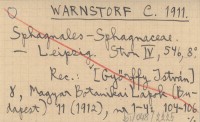 WARNSTORF C. 1911.
Sphagnales-Sphagnaceae.
— Leipzig. IV, 546, 8°
Rec.: [Györffy István]
8, Magyar Botanikai Lapok (Bu-
dapest) 11 (1912), no 1-4: 104-106.